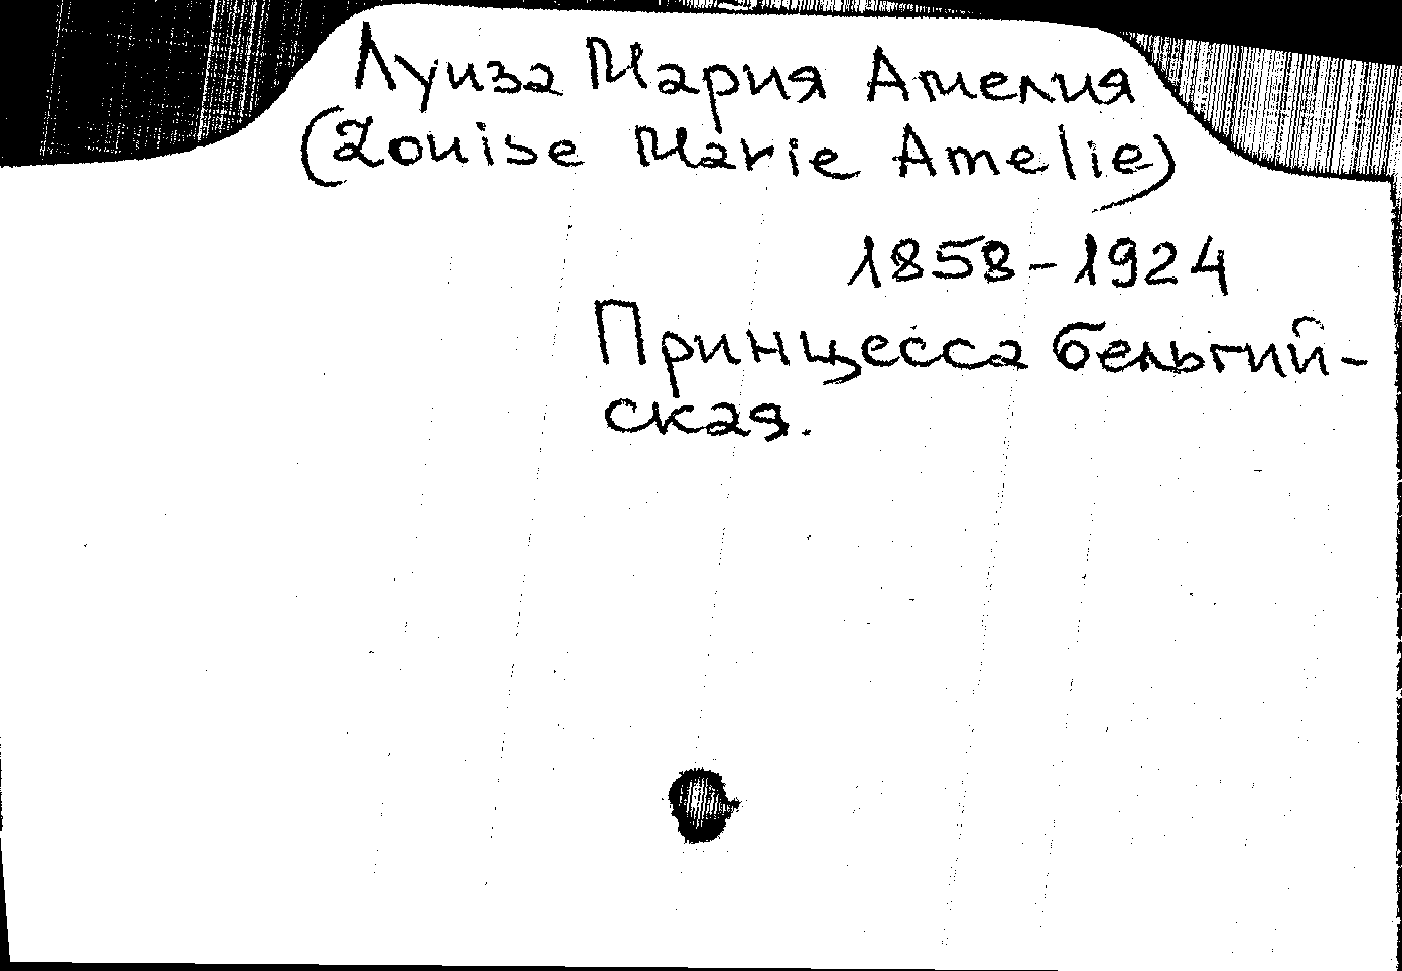 Луиза Мария Амелия
(Louise Marie Amelie)
1858-1924
Принцесса бельгий-
ская.